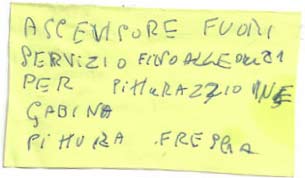 ASCENSORE FUORI
SERVIZIO FINO ALLE ORE 21
PER PITTURAZZIONE
CABINA
PITTURA FRESCA